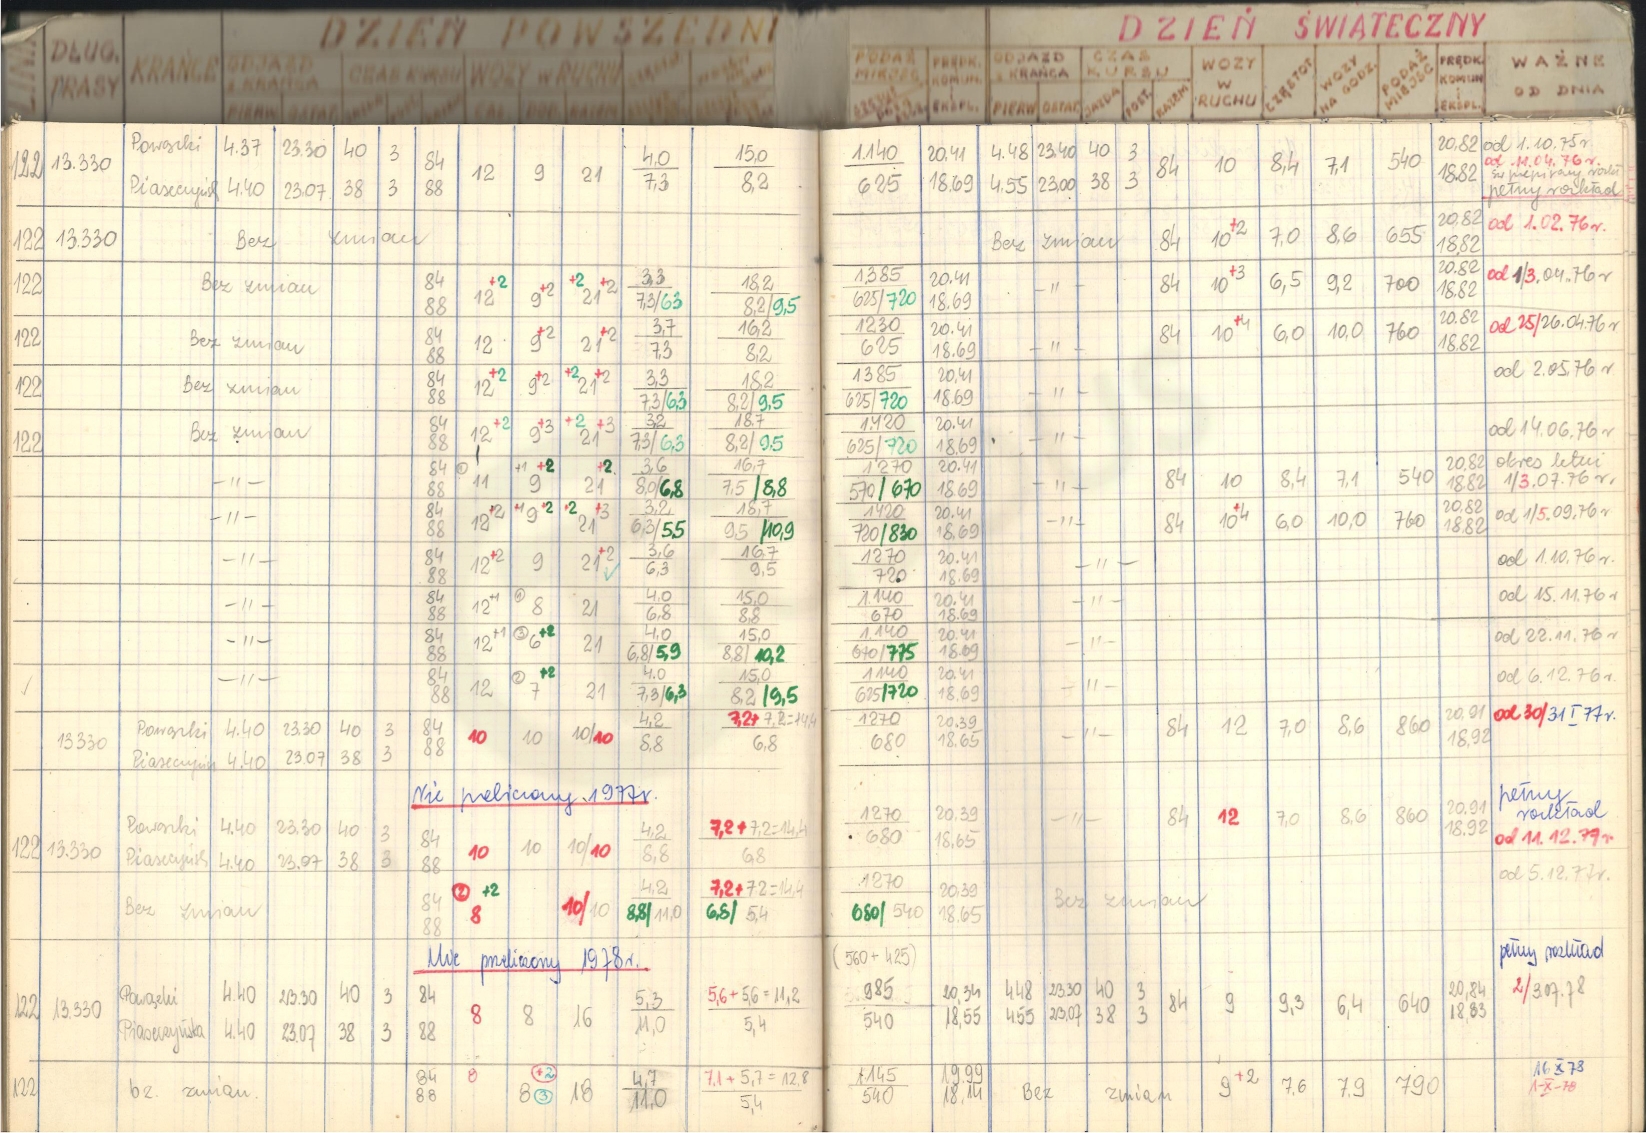 DZIEŃ POWSZEDNI DZIEŃ ŚWIĄTECZNY
DŁUG. TRASY KRAŃCE ODJAZD Z KRAŃCA CZAS KURSU WOZY W RUCHU PODAŻ MIEJSC PRĘDK. KOMUN. EKSPL. ODJAZD Z KRAŃCA CZAS KURSU WOZY W RUCHU CZĘSTOT. WOZY NA GODZ. PODAŻ MIEJSC PRĘDK. KOMUN I EKSPL. WAŻNE OD DNIA
PIERW OSTAT. PIERW OSTAT. JAZDA POST. RAZEM
122 13.330 Powązki 4.37 23.30 40 3 84 12 9 21 4.0 15,0 1.140 20.41 4.48 23.40 40 3 84 10 8,4 7,1 540 20,82 od 1.10.75r
od 11.04.76 r.
Piaseczyńsk 4.40 23.07 38 3 88 7,3 8,2 625 18.69 4.55 23.00 38 3 18,82 pełny rozkład
122 13.330 Bez zmian Bez zmian 84 10+2 7,0 8,6 655 20,82 18,82 od 1.02.76 r.
122 Bez zmian 84 12+2 9+2 +2 21+2 3,3 18,2 1385 20.41 -"- 84 10+3 6,5 9,2 700 20.82 od 1/3.04.76 r
88 7,3/6,3 8,2/9,5 625/720 18.69 18,82
122 Bez zmian 84 12 9+2 21+2 3,7 16,2 1230 20.41 -"- 84 10+4 6,0 10,0 760 20.82 od 25/26.04.76 r
88 7,3 8,2 625 18.69 18,82
122 Bez zmian 84 12+2 9+2 +2 21+2 3,3 18,2 1385 20,41 -"- od 2.05.76 r
88 7,3/6,3 8,2/9,5 625/720 18.69
122 Bez zmian 84 12+2 9+3 +2 21+3 3,2 18,7 1420 20.41 -"- od 14.06.76 r
88 7,3/6,3 8,2/9,5 625/720 18.69
-"- 84 ① 11 +1 9 +2 21 +2 3,6 16,7 1270 20.41 -"- 84 10 8,4 7,1 540 20,82 okres letni
88 8,0/6,8 7,5/8,8 570/670 18.69 18.82 1/3.07.76 r.
-"- 84 12+2 +1 9+2 +2 21+3 3,2 18,7 1420 20.41 -"- 84 10+4 6,0 10,0 760 20,82 od 1/5.09.76 r
88 6,3/5,5 9,5/10,9 720/830 18.69 18.82
-"- 84 12+2 9 21+2 3,6 16,7 1270 20.41 -"- od 1.10.76 r.
88 6,3 9,5 720 18.69
-"- 84 12+1 ① 8 21 4.0 15,0 1.140 20.41 -"- od 15.11.76 r
88 6,8 8,8 670 18.69
-"- 84 12+1 ③ 6+2 21 4.0 15,0 1.140 20.41 -"- od 22.11.76 r
88 6,8/5,9 8,8/10,2 670/775 18.69
-"- 84 12 ② 7+2 21 4.0 15,0 1140 20.41 -"- od 6.12.76 r.
88 7,3/6,3 8,2/9,5 625/720 18,69
13.330 Powązki 4.40 23.30 40 3 84 10 10 10/10 4,2 7,2+7,2=14,4 1270 20.39 -"- 84 12 7,0 8,6 860 20.91 od 30/31 I 77 r.
Piaseczyńsk 4.40 23.07 38 3 88 8,8 6,8 680 18.65 18,92
Nie przeliczony 1977 r.
122 13.330 Powązki 4.40 23.30 40 3 84 10 10 10/10 4,2 7,2+7,2=14,4 1270 20.39 -"- 84 12 7,0 8,6 860 20.91 pełny rozkład
Piaseczyńsk 4.40 23.07 38 3 88 8,8 6,8 680 18,65 18.92 od 11.12.77 r
Bez zmian 84 ② 8 +2 10/10 4,2 7,2+7,2=14,4 1270 20.39 Bez zmian od 5.12.77 r.
88 8,8/11,0 6,8/5,4 680/540 18.65
Nie przeliczony 1978 r. (560+425) pełny rozkład
122 13.330 Powązki 4.40 23.30 40 3 84 8 8 16 5,3 5,6+5,6=11,2 985 20,34 4.48 23.30 40 3 84 9 9,3 6,4 640 20,84 2/3.07.78
Piaseczyńska 4.40 23.07 38 3 88 11,0 5,4 540 18,55 4.55 23.07 38 3 18.83
122 bz. zmian. 84 8 8 +2 ③ 18 4,7 7,1+5,7=12,8 1145 19.99 Bez zmian 9+2 7,6 7,9 790 16 X 78
88 11,0 5,4 540 18,14 1-X-78